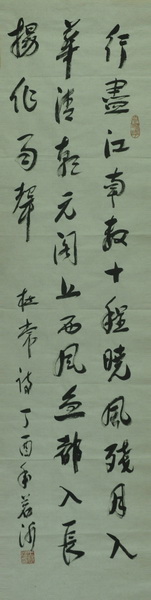 行盡江南數十程曉風殘月入
華清朝元閣上西風急都入長
楊作雨聲 杜常詩 丁酉年